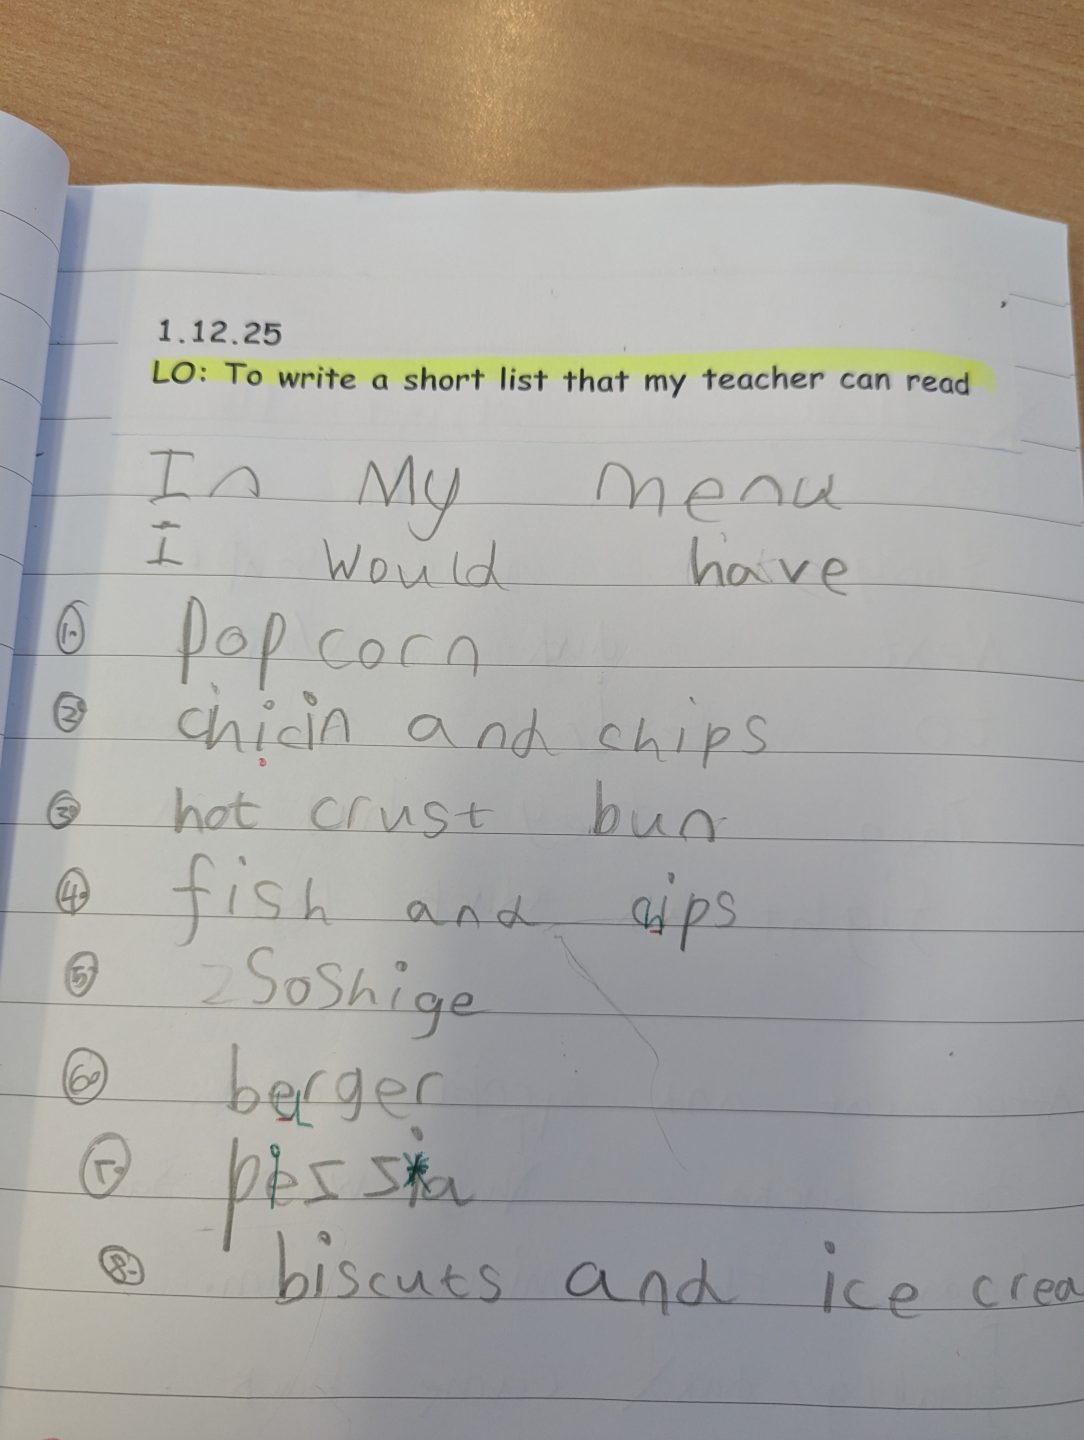 1.12.25
LO: To write a short list that my teacher can read
In My menu
I would have
1. popcorn
2. chicin and chips
3. hot crust bun
4. fish and chips
5. Soshige
6. burger
7. pissa
8. biscuts and ice crea